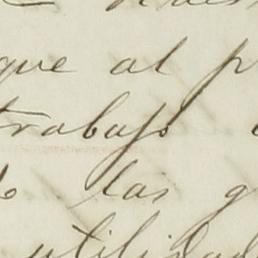 que al p
trabajo
las g
utilidad